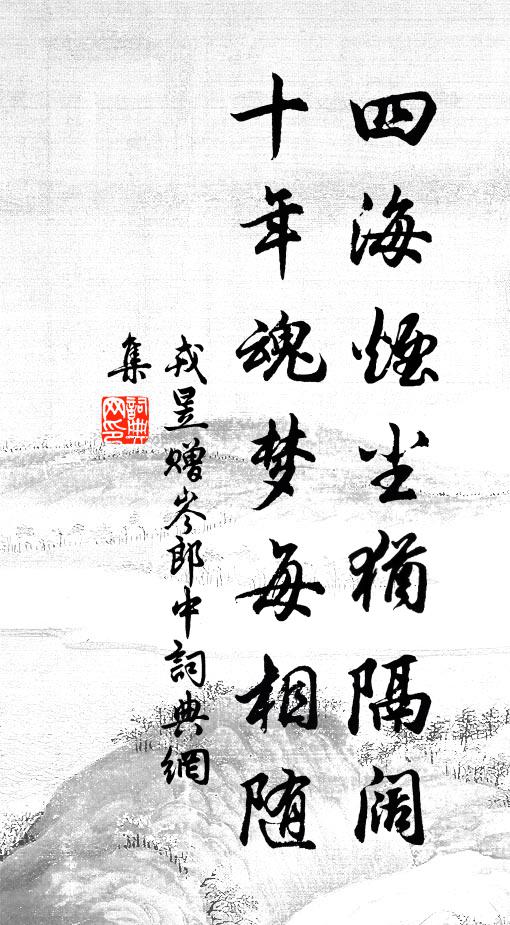 四海煙尘猶隔阔
十年魂梦每相随
戎昱赠岑郎中詞典網
集
詞典网印